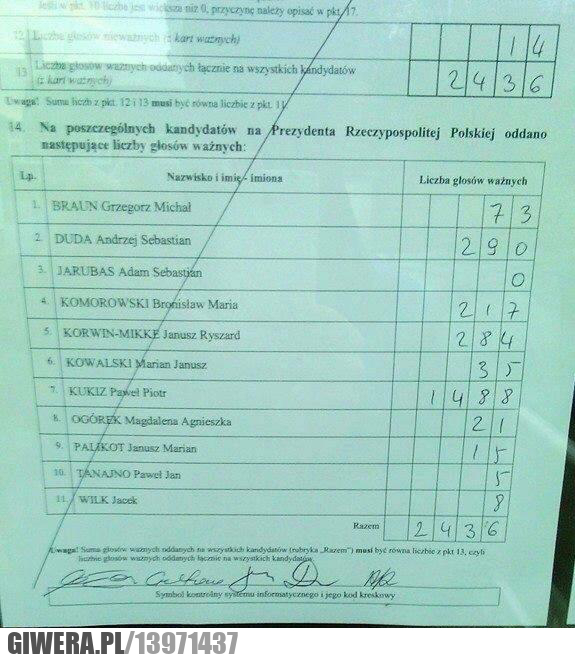 Jeśli w pkt. 10 liczba jest większa niż 0, przyczynę należy opisać w pkt. 17.
12 Liczba głosów nieważnych (z kart ważnych) 14
13 Liczba głosów ważnych oddanych łącznie na wszystkich kandydatów
(z kart ważnych) 2436
Uwaga! Suma liczb z pkt. 12 i 13 musi być równa liczbie z pkt. 11.
14. Na poszczególnych kandydatów na Prezydenta Rzeczypospolitej Polskiej oddano
następujące liczby głosów ważnych:
Lp. Nazwisko i imię - imiona Liczba głosów ważnych
1. BRAUN Grzegorz Michał 73
2. DUDA Andrzej Sebastian 290
3. JARUBAS Adam Sebastian 0
4. KOMOROWSKI Bronisław Maria 217
5. KORWIN-MIKKE Janusz Ryszard 284
6. KOWALSKI Marian Janusz 35
7. KUKIZ Paweł Piotr 1488
8. OGÓREK Magdalena Agnieszka 21
9. PALIKOT Janusz Marian 15
10. TANAJNO Paweł Jan 5
11. WILK Jacek 8
Razem 2436
Uwaga! Suma głosów ważnych oddanych na wszystkich kandydatów (rubryka „Razem") musi być równa liczbie z pkt 13, czyli
liczbie głosów ważnych oddanych łącznie na wszystkich kandydatów.
Symbol kontrolny systemu informatycznego i jego kod kreskowy
GIWERA.PL/13971437